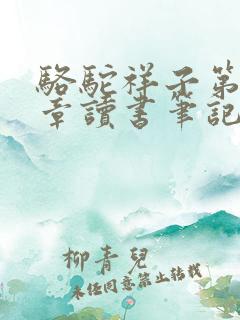 駱駝祥子第
章讀書筆記
柳青兒
未经同意禁止转载